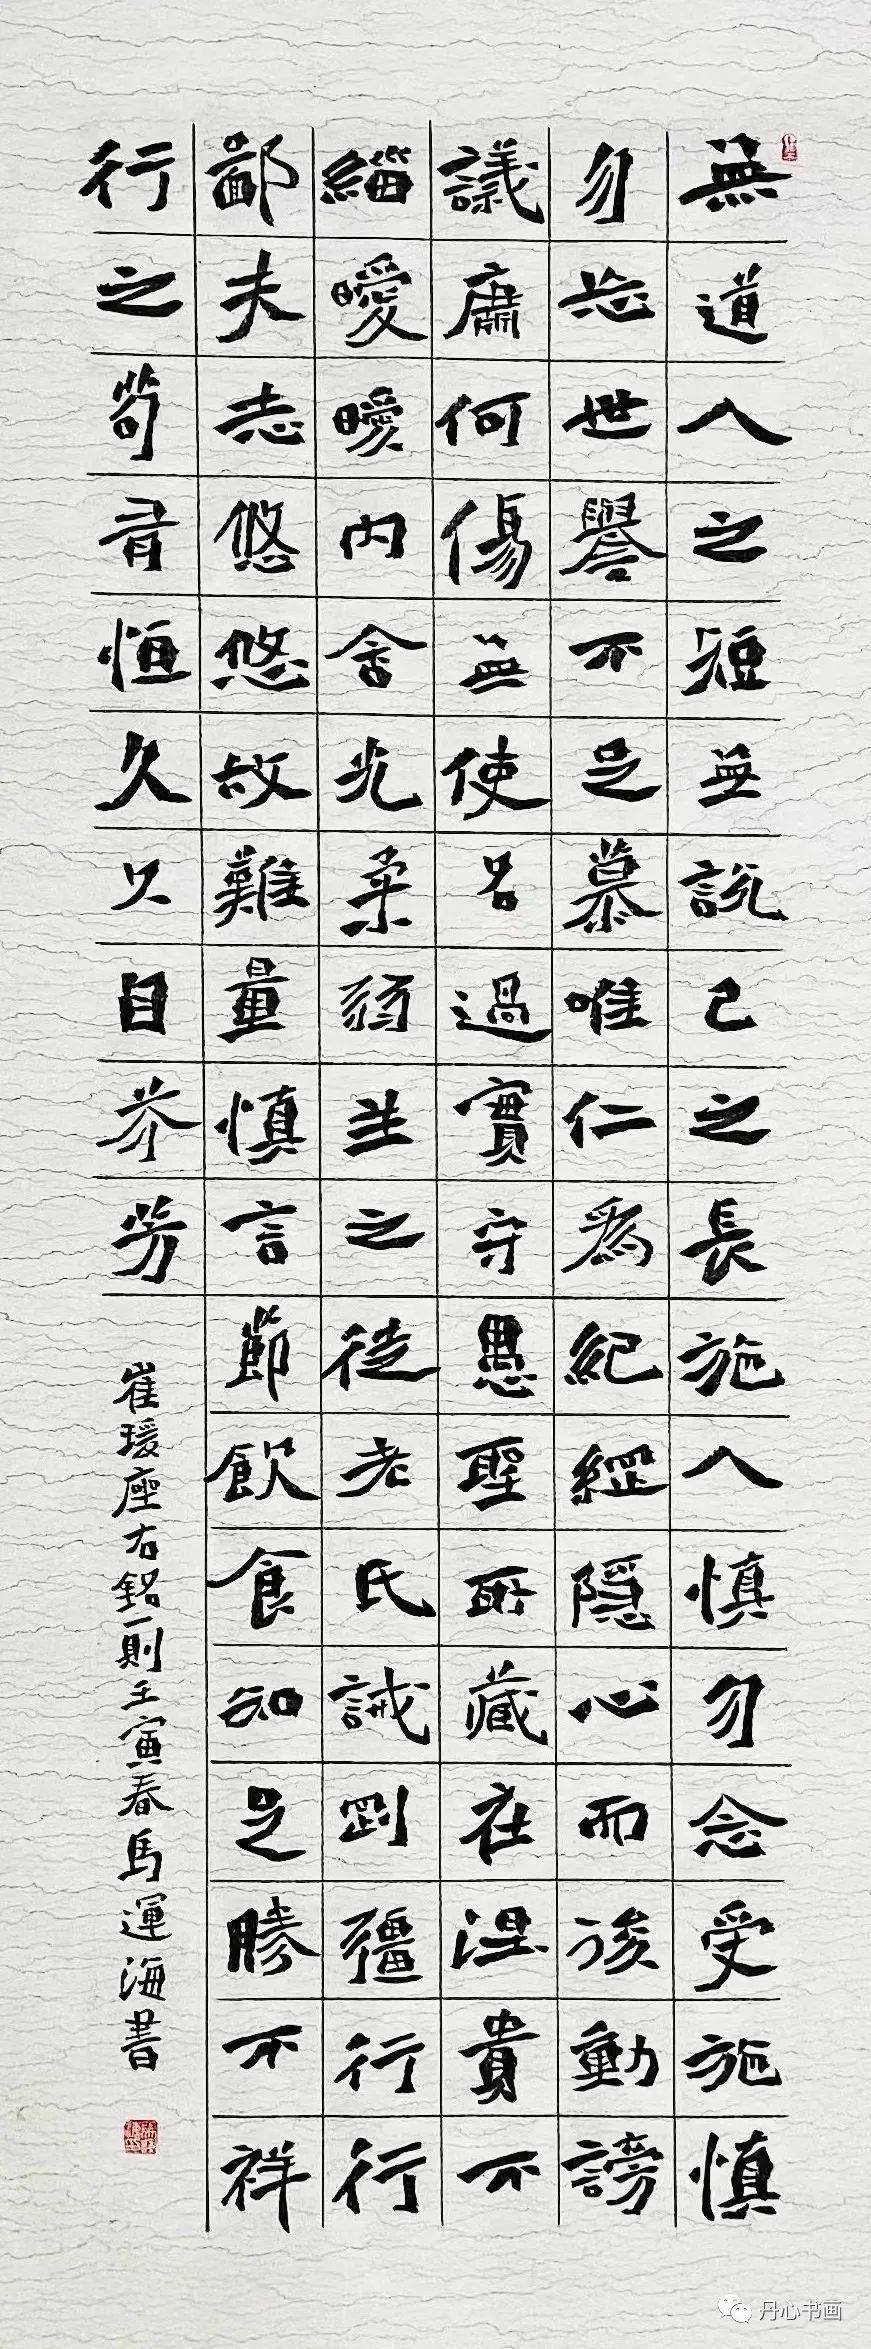 無道人之短無說己之長施人慎勿念受施慎
勿忘世譽不足慕唯仁為紀綱隱心而後動謗
議庸何傷無使名過實守愚聖所藏在涅貴不
緇曖曖內含光柔弱生之徒老氏誡剛彊行行
鄙夫志悠悠故難量慎言節飲食知足勝不祥
行之苟有恒久久自芬芳
崔瑗座右銘一則壬寅春馬運海書
丹心书画